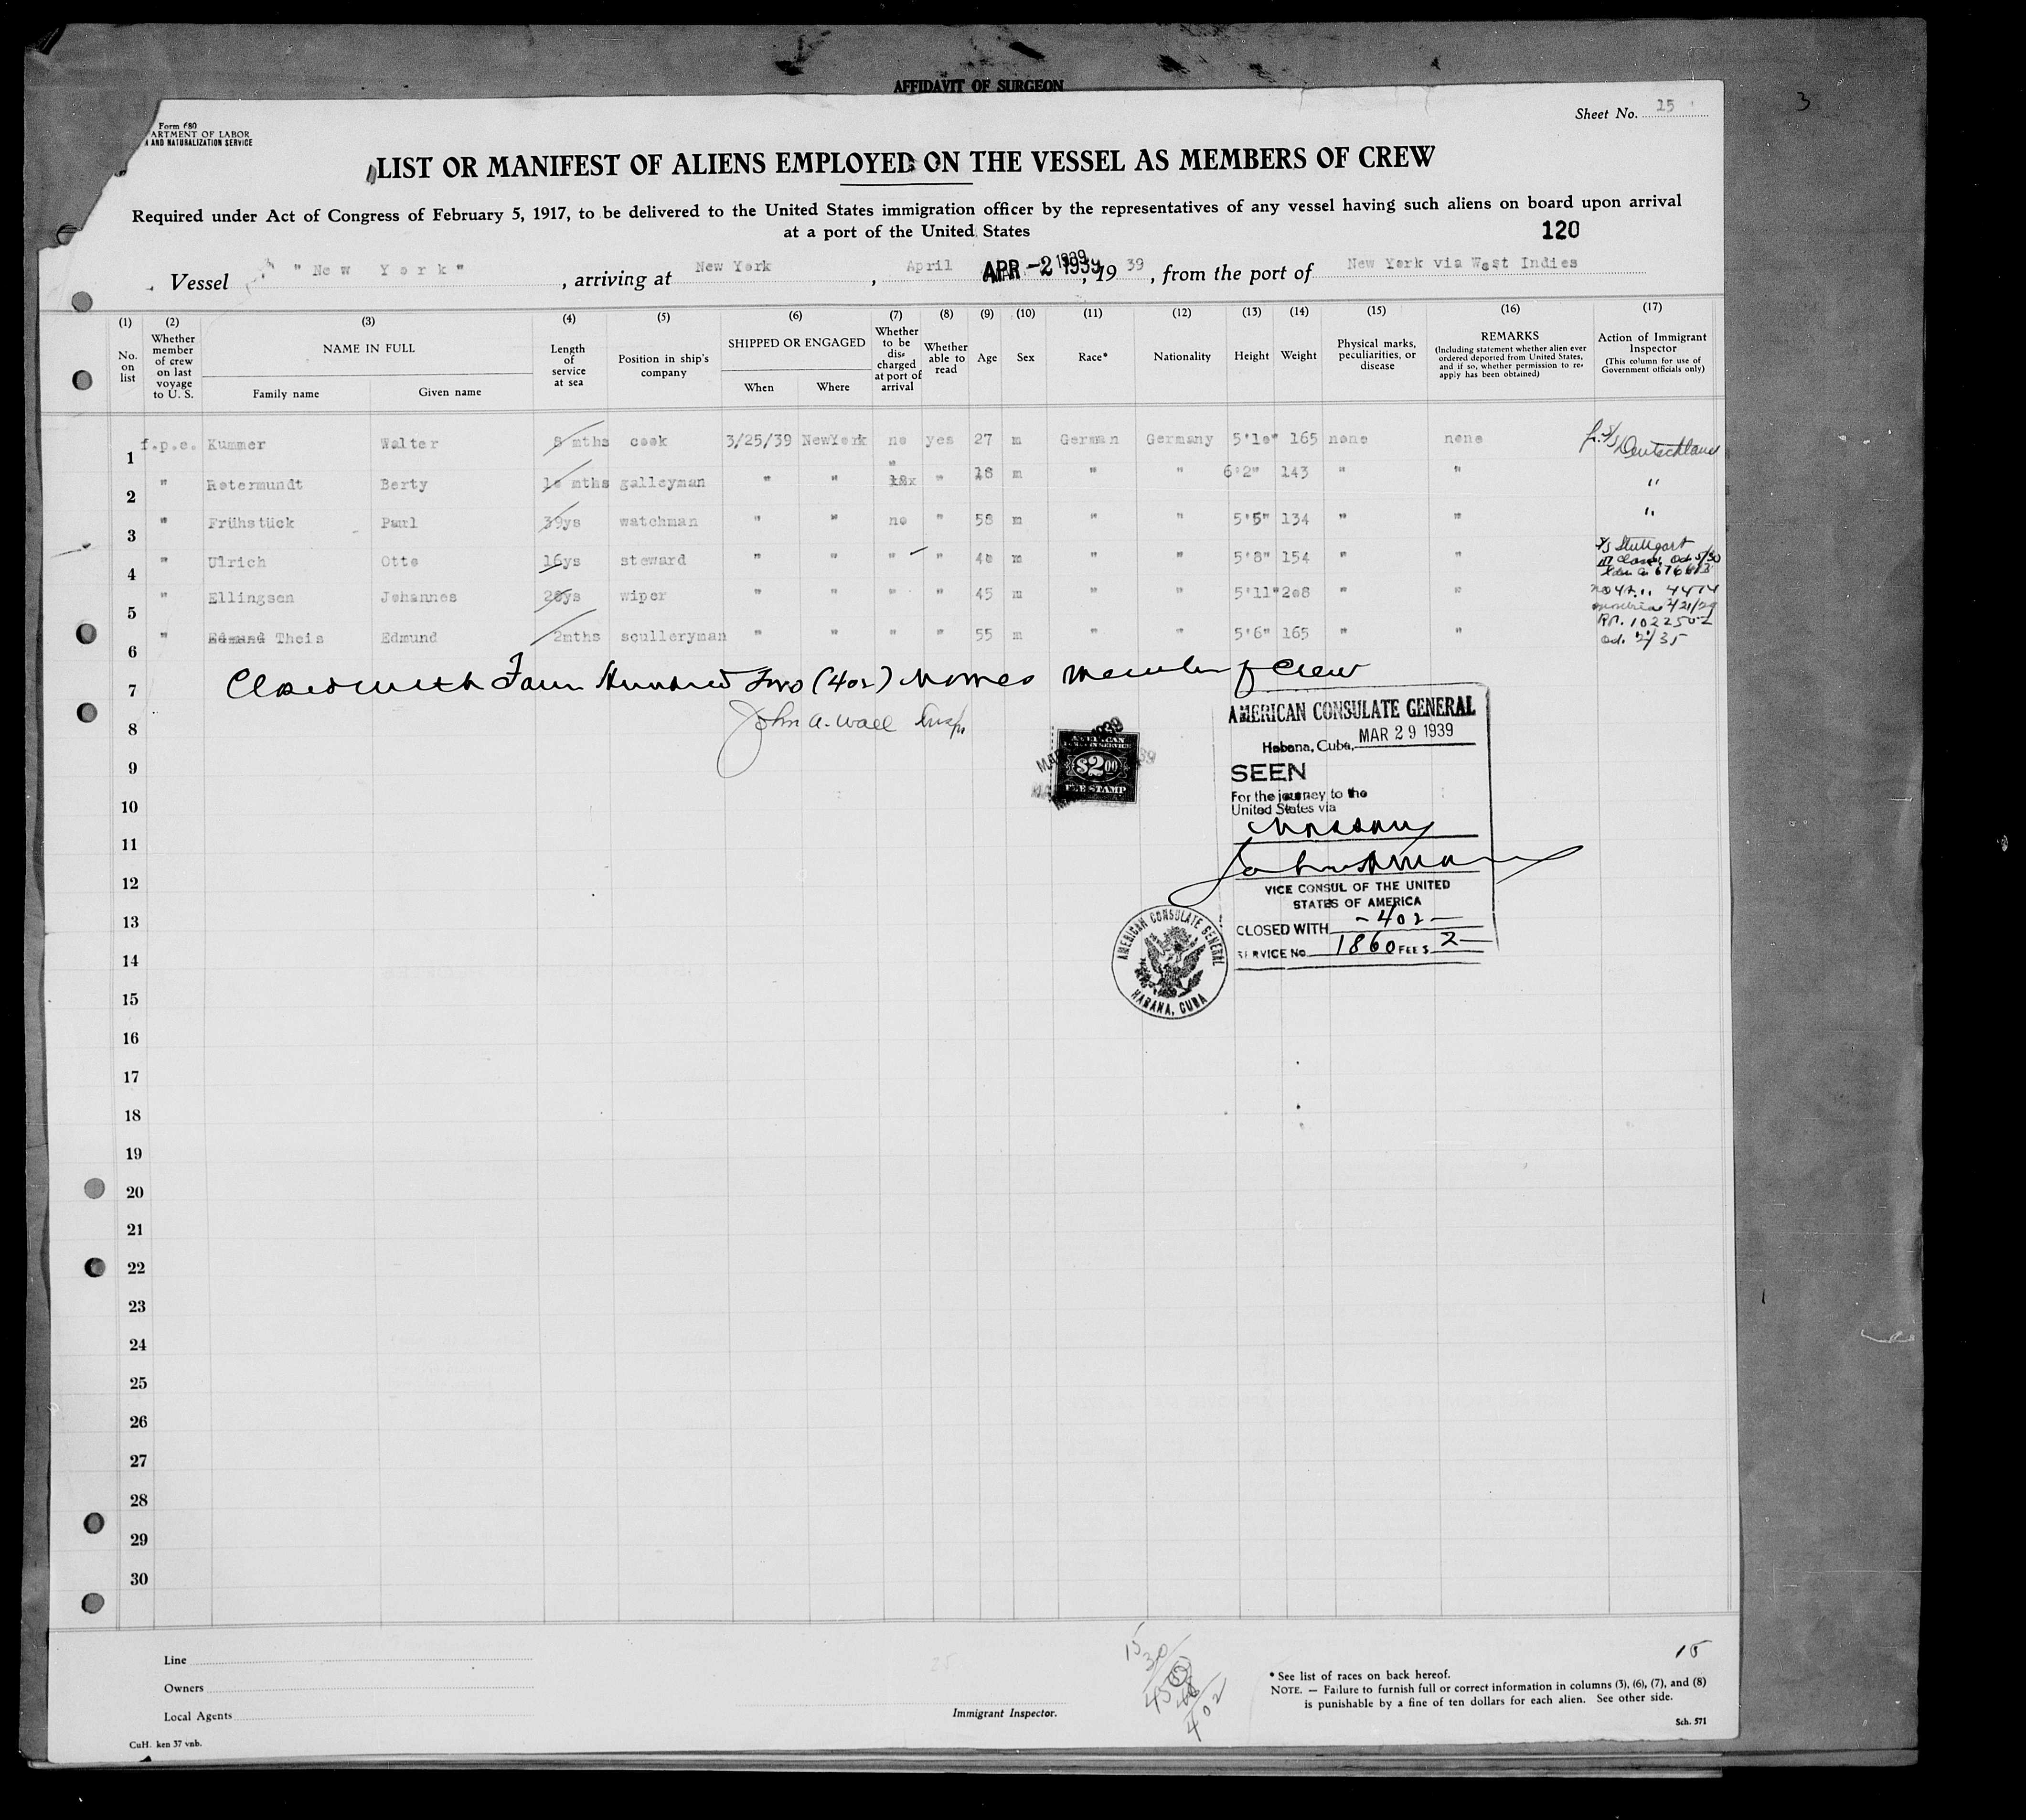 AFFIDAVIT OF SURGEON
3
Sheet No. 15
Form 680
ARTMENT OF LABOR
AND NATURALIZATION SERVICE
LIST OR MANIFEST OF ALIENS EMPLOYED ON THE VESSEL AS MEMBERS OF CREW
Required under Act of Congress of February 5, 1917, to be delivered to the United States immigration officer by the representatives of any vessel having such aliens on board upon arrival
at a port of the United States
120
Vessel "New York", arriving at New York, April APR -2 1939, 19 39, from the port of New York via West Indies
(1) (2) (3) (4) (5) (6) (7) (8) (9) (10) (11) (12) (13) (14) (15) (16) (17)
No. on list
Whether member of crew on last voyage to U. S.
NAME IN FULL
Family name Given name
Length of service at sea
Position in ship's company
SHIPPED OR ENGAGED
When Where
Whether to be discharged at port of arrival
Whether able to read
Age
Sex
Race*
Nationality
Height
Weight
Physical marks, peculiarities, or disease
REMARKS
(Including statement whether alien ever ordered deported from United States, and if so, whether permission to reapply has been obtained)
Action of Immigrant Inspector
(This column for use of Government officials only)
1 f.p.e. Kummer Walter 8 mths cook 3/25/39 NewYork no yes 27 m German Germany 5'10" 165 none none Deutschland
2 " Rotermundt Berty 10 mths galleyman " " " " 18 m " " 6'2" 143 " " "
3 " Frühstück Paul 39ys watchman " " no " 58 m " " 5'5" 134 " " "
4 " Ulrich Otto 16ys steward " " " " 40 m " " 5'8" 154 " " S/S Stuttgart
5 " Ellingsen Johannes 20ys wiper " " " " 45 m " " 5'11" 208 " "
6 " Edmund Theis Edmund 2mths sculleryman " " " " 55 m " " 5'6" 165 " "
7 Closed with Four Hundred Two (402) Names Member of Crew
8 John A. Wall Insp
9
10
11
12
13
14
15
16
17
18
19
20
21
22
23
24
25
26
27
28
29
30
AMERICAN
$2.00
FEE STAMP
AMERICAN CONSULATE GENERAL
Habana, Cuba, MAR 29 1939
SEEN
For the journey to the
United States via
VICE CONSUL OF THE UNITED
STATES OF AMERICA
CLOSED WITH -402-
SERVICE No. 1860 FEE $ 2-
AMERICAN CONSULATE GENERAL
HABANA, CUBA
Line
Owners
Local Agents
CuH. ken 37 vnb.
Immigrant Inspector.
15
30
402
15
* See list of races on back hereof.
NOTE. — Failure to furnish full or correct information in columns (3), (6), (7), and (8)
is punishable by a fine of ten dollars for each alien. See other side.
Sch. 571